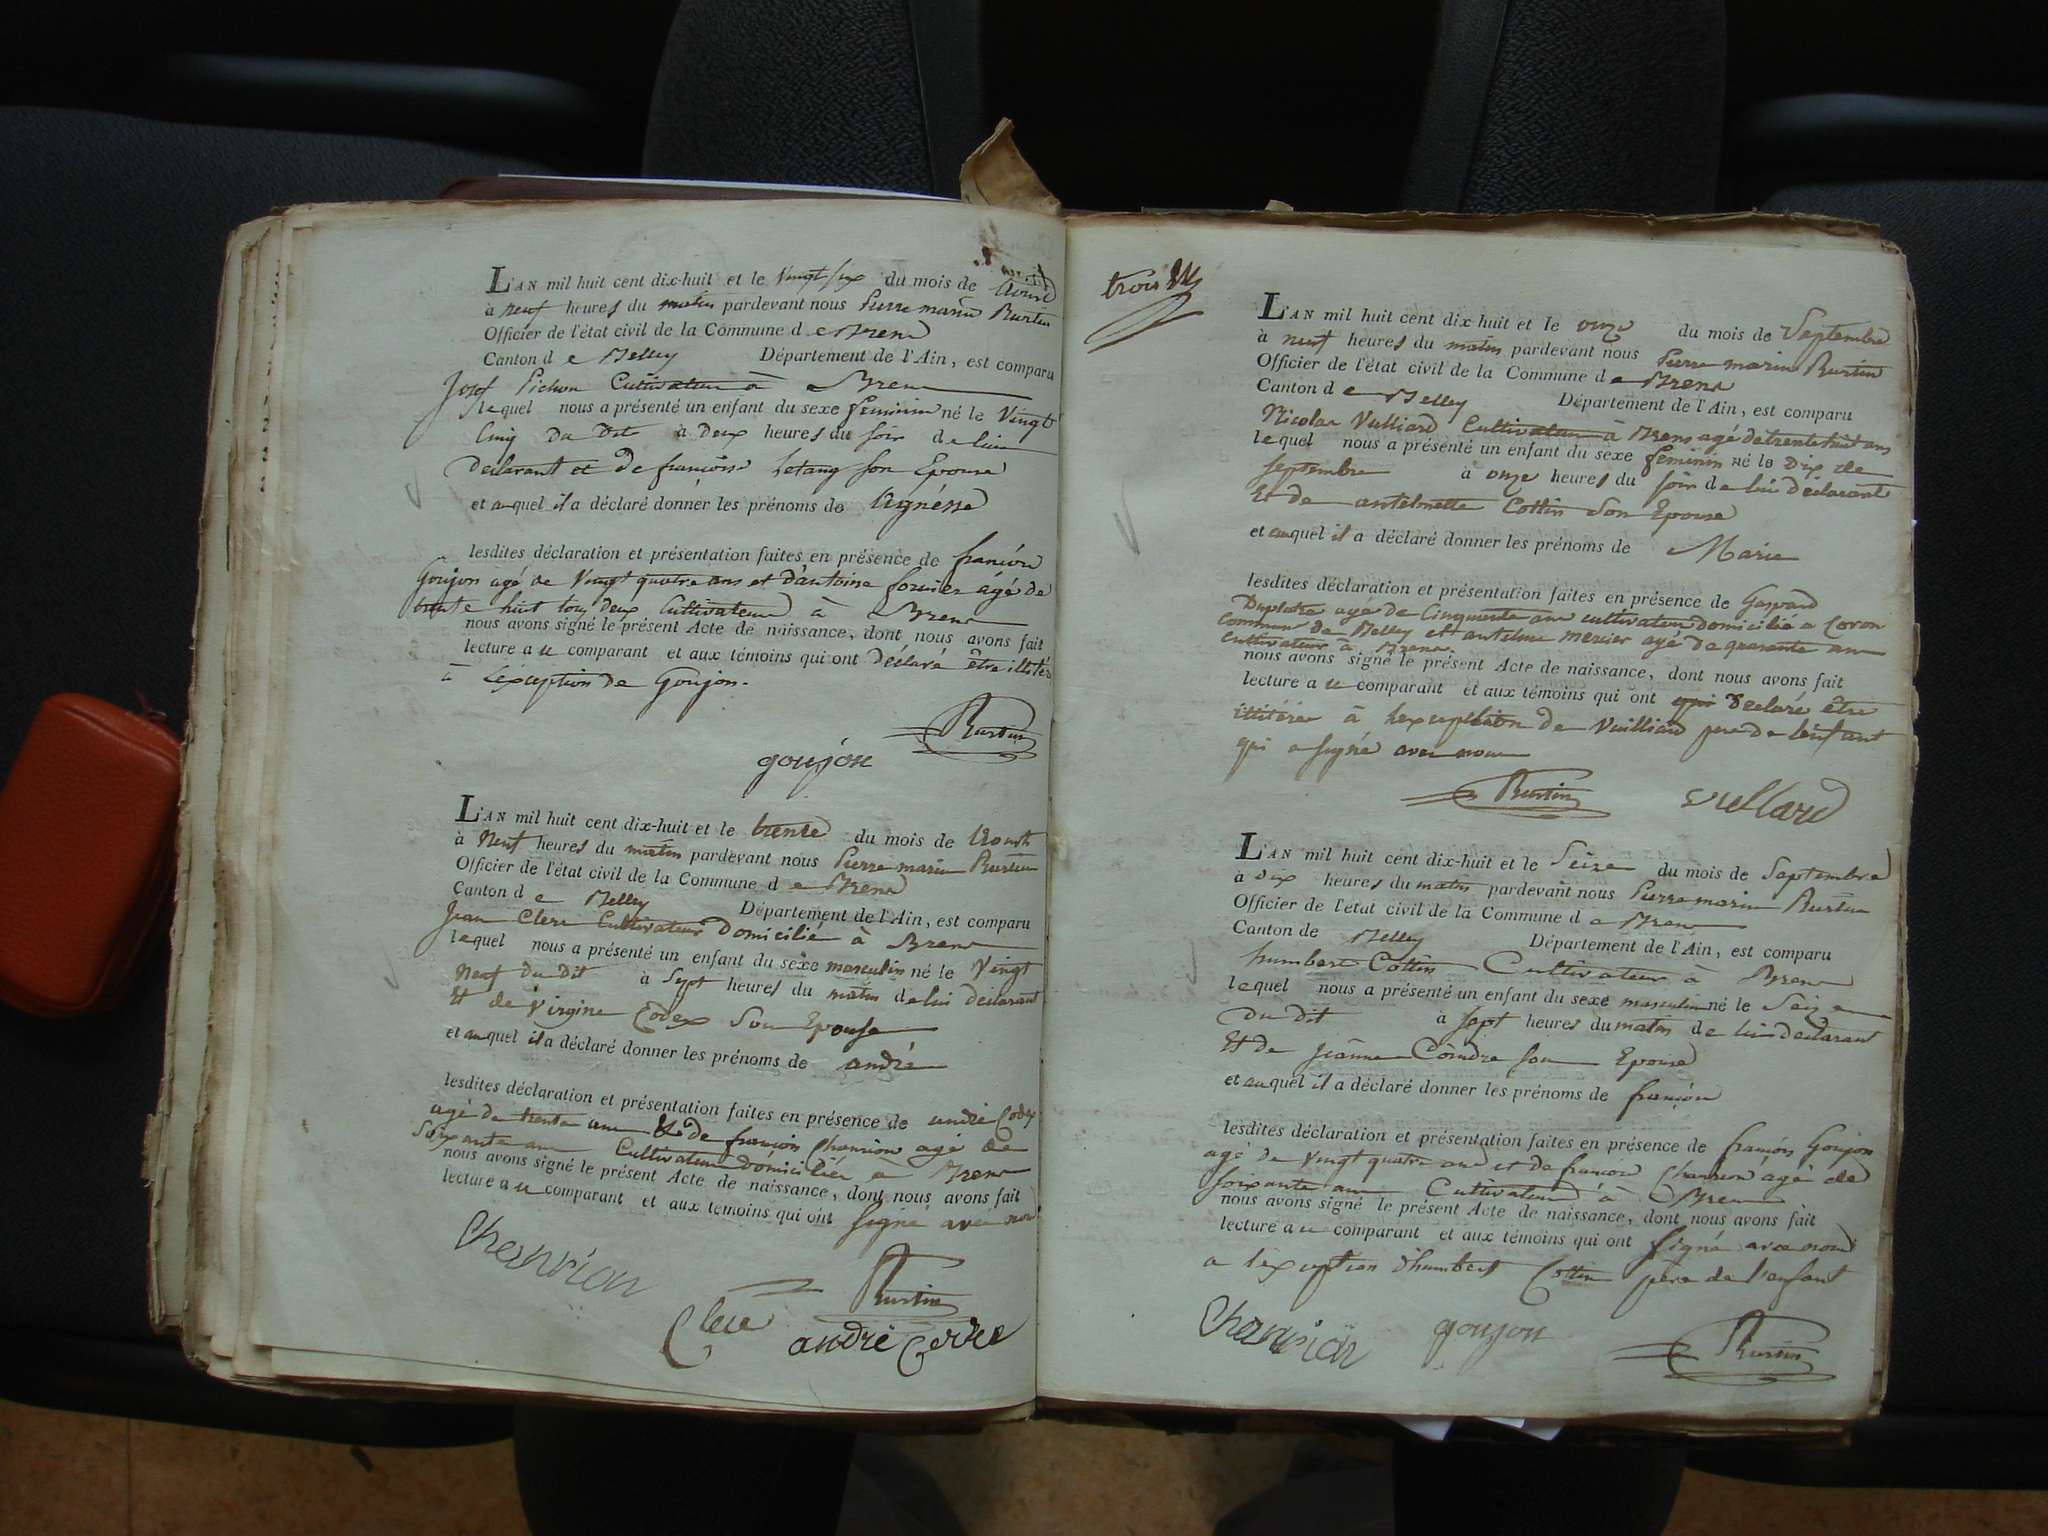 L'AN mil huit cent dix-huit et le Vingt six du mois de Aoust
à neuf heures du matin pardevant nous Pierre marin Rurtin
Officier de l'état civil de la Commune de Brens
Canton de Belley Département de l'Ain, est comparu
Josef Pichon Cultivateur à Brens
lequel nous a présenté un enfant du sexe feminin né le Vingt
Cinq Du Dit à Deux heures du soir de lui
declarant et de françoise Letang son Epouse
et auquel il a déclaré donner les prénoms de Agnésse
lesdites déclaration et présentation faites en présence de françois
Goujon agé de Vingt quatre ans et d'antoine fornier agé de
trente huit tous deux Cultivateurs à Brens
nous avons signé le présent Acte de naissance, dont nous avons fait
lecture au comparant et aux témoins qui ont déclaré être illitéré
à l'exception de Goujon.
Rurtin
goujon
L'AN mil huit cent dix-huit et le trente du mois de Aoust
à Neuf heures du matin pardevant nous Pierre marin Rurtin
Officier de l'état civil de la Commune de Brens
Canton de Belley Département de l'Ain, est comparu
Jean Clerc Cultivateur Domicilié à Brens
lequel nous a présenté un enfant du sexe masculin né le Vingt
Neuf Du Dit à Sept heures du matin de lui déclarant
Et de Virgine Codex Son Epouse
et auquel il a déclaré donner les prénoms de andré
lesdites déclaration et présentation faites en présence de andré Codex
agé de trente ans Et de françois Chanrion agé de
Soixante ans Cultivateurs domiciliés à Brens
nous avons signé le présent Acte de naissance, dont nous avons fait
lecture au comparant et aux témoins qui ont signé avec nous
Chanrion
Rurtin
Clerc andré
trois
L'AN mil huit cent dix-huit et le onze du mois de Septembre
à neuf heures du matin pardevant nous Pierre marin Rurtin
Officier de l'état civil de la Commune de Brens
Canton de Belley Département de l'Ain, est comparu
Nicolas Vulliard Cultivateur à Brens agé de trente huit ans
lequel nous a présenté un enfant du sexe feminin né le Dix de
septembre à onze heures du soir de lui déclarant
Et de antelmette Cottin Son Epouse
et auquel il a déclaré donner les prénoms de Marie
lesdites déclaration et présentation faites en présence de Gaspard
Duplatre agé de Cinquante ans cultivateur domicilié à Coron
commune de Belley et antelme mercier agé de quarante ans
cultivateur à Brens.
nous avons signé le présent Acte de naissance, dont nous avons fait
lecture au comparant et aux témoins qui ont qui Déclaré être
illitérés à lexception de Vuilliard pere de lenfant
qui a signé avec nous
Rurtin vullard
L'AN mil huit cent dix-huit et le Seize du mois de Septembre
à dix heures du matin pardevant nous Pierre marin Rurtin
Officier de l'état civil de la Commune de Brens
Canton de Belley Département de l'Ain, est comparu
humbert Cottin Cultivateur à Brens
lequel nous a présenté un enfant du sexe masculin né le Seize
Du Dit à sept heures du matin de lui declarant
Et de jeanne Coindre son Epouse
et auquel il a déclaré donner les prénoms de françois
lesdites déclaration et présentation faites en présence de françois Goujon
agé de Vingt quatre ans et de françois Chanrion agé de
soixante ans Cultivateurs à Brens
nous avons signé le présent Acte de naissance, dont nous avons fait
lecture au comparant et aux témoins qui ont signé avec nous
a l'exception d'humbert Cottin père de l'enfant
Chanrion goujon
Rurtin